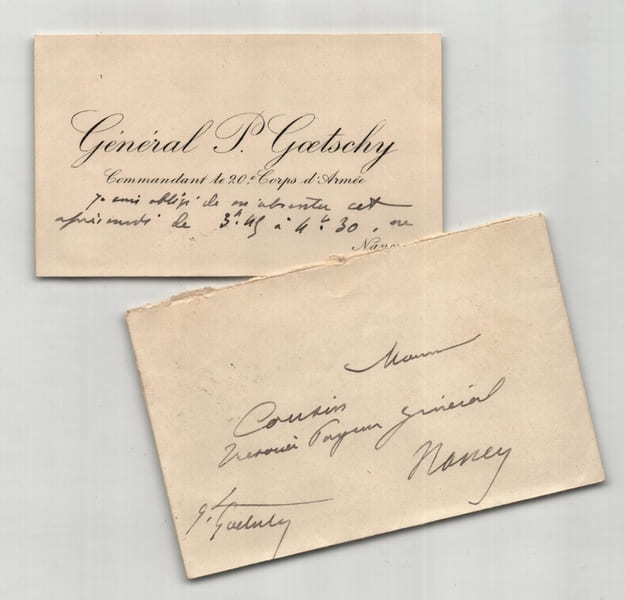 Général P. Gœtschy
Commandant le 20e Corps d'Armée
Je suis obligé de m'absenter cet
après midi de 3h.45 à 4h.30, ne
Nancy
Monsieur
Cousin
Trésorier Payeur Général
Nancy
Gl Goetschy